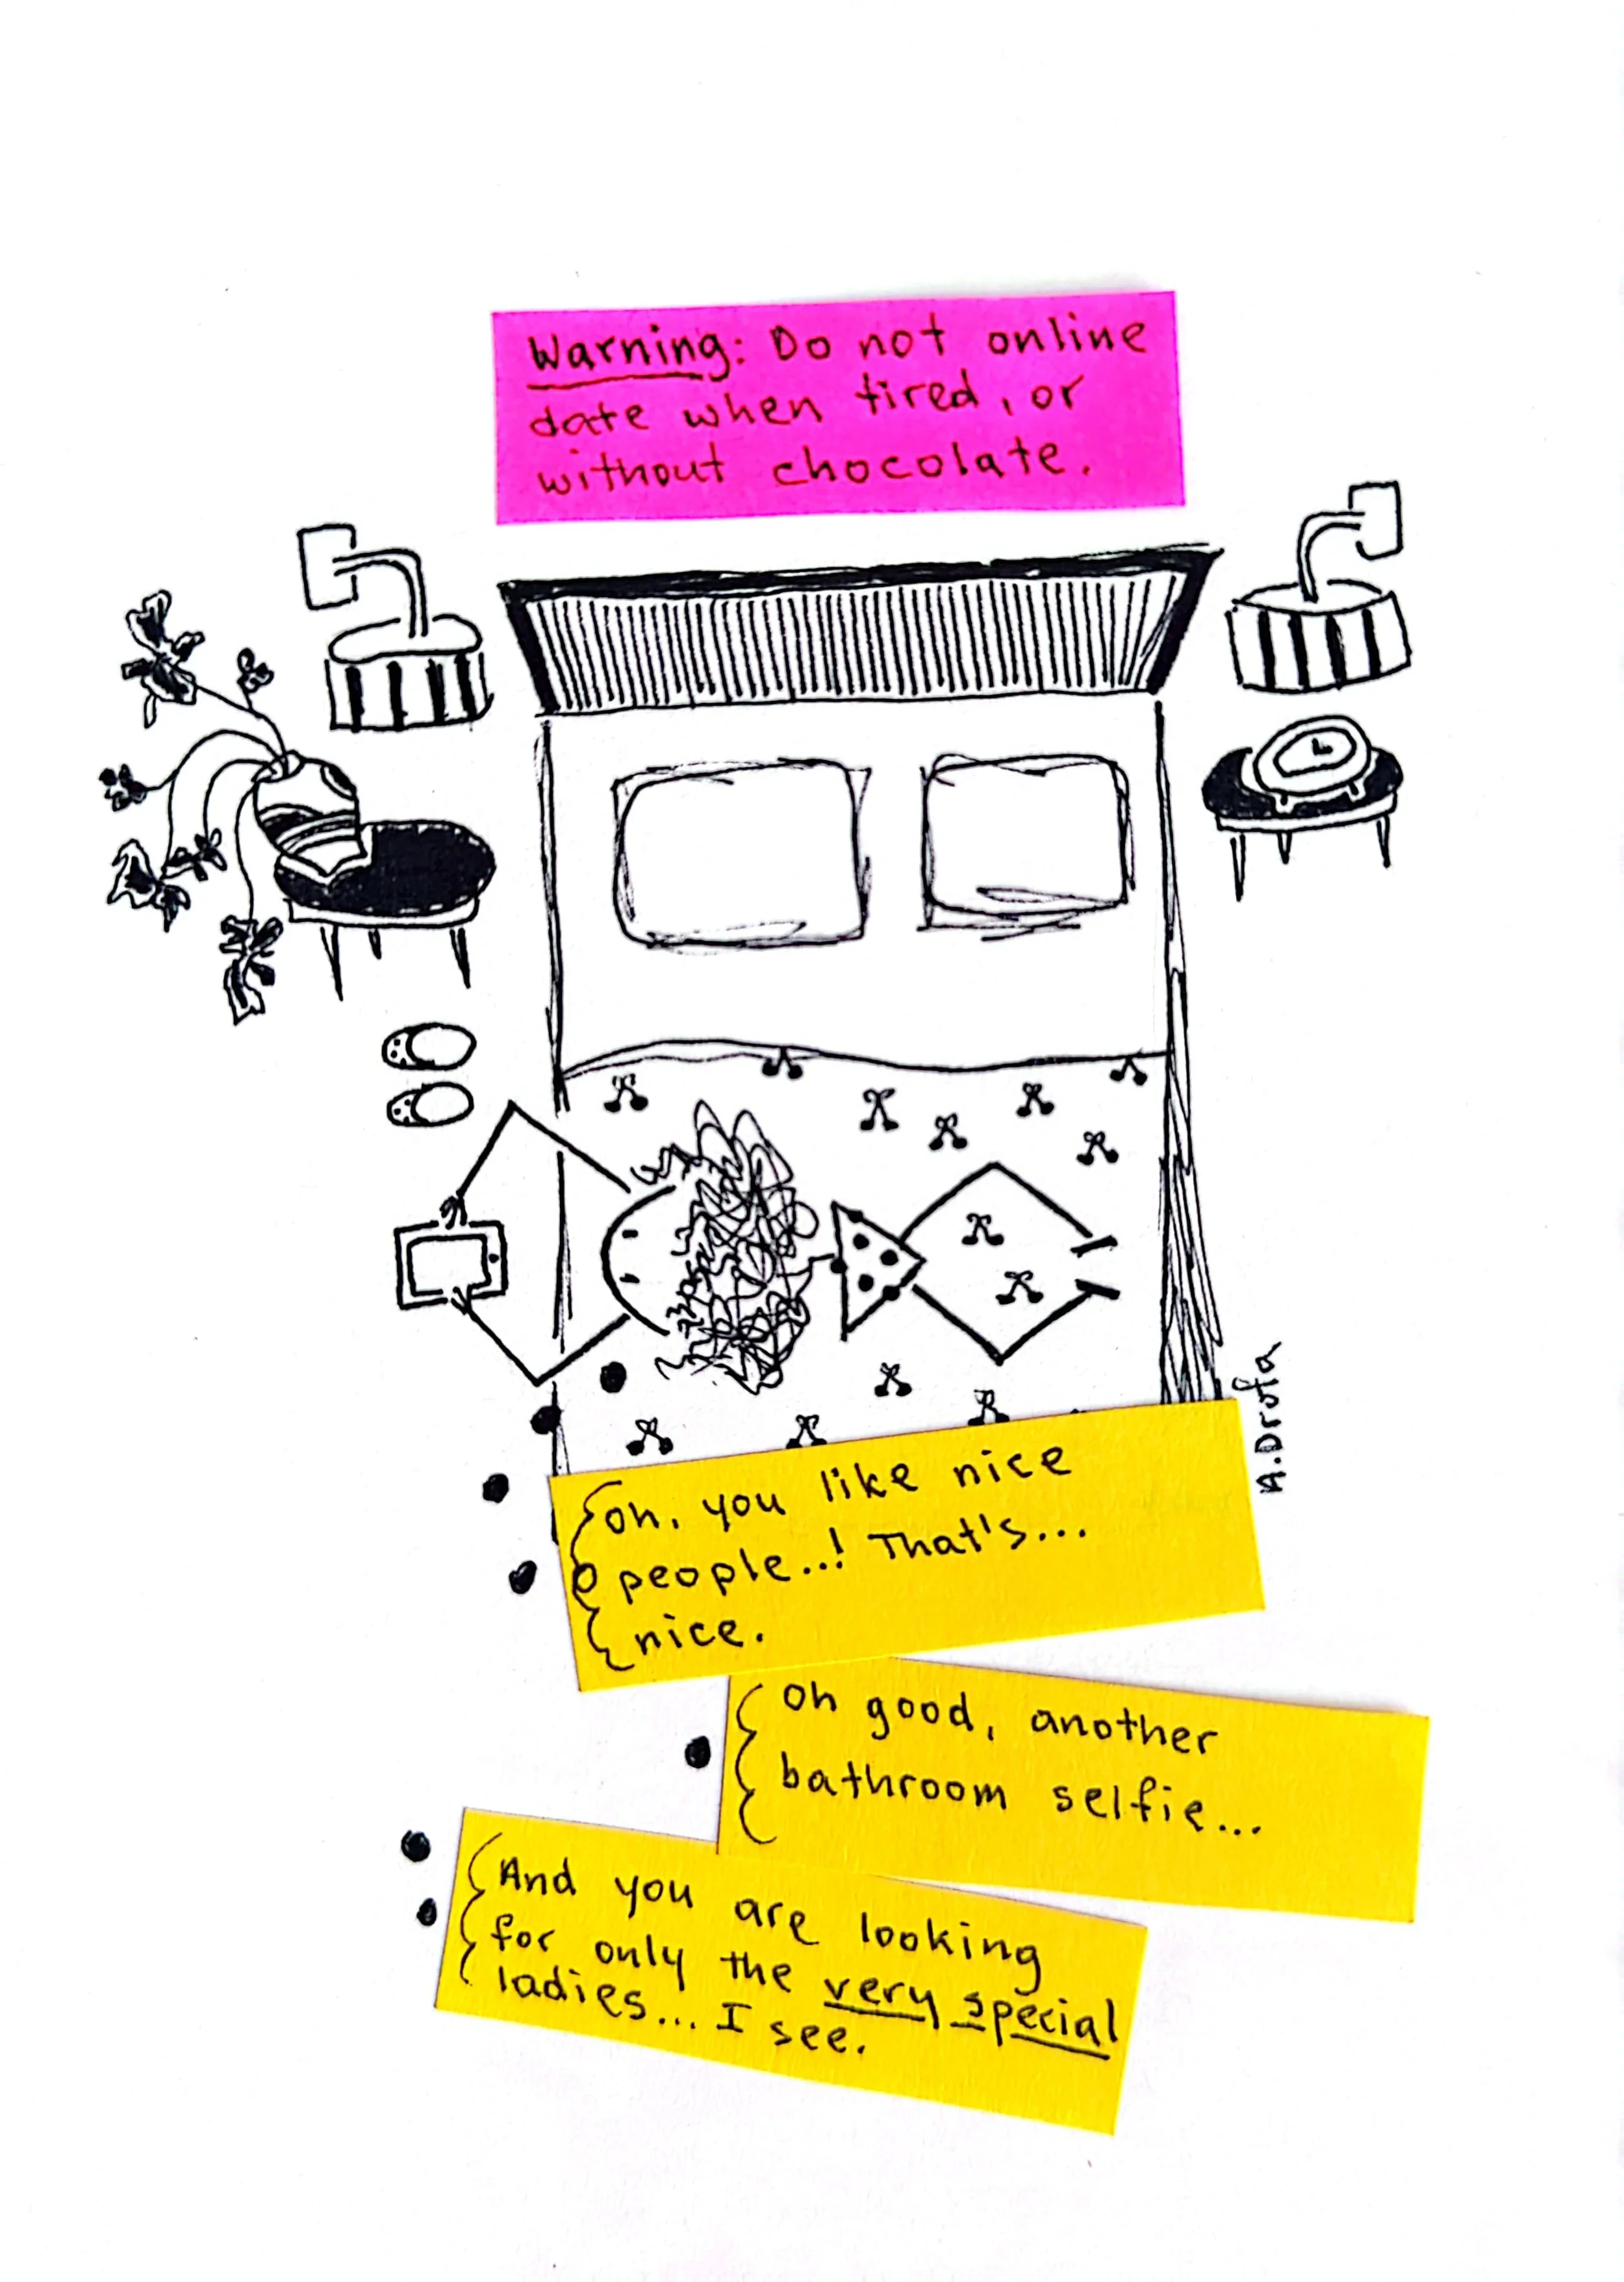 Warning: Do not online
date when tired, or
without chocolate.
A.Drofa
oh, you like nice
people..! That's...
nice.
oh good, another
bathroom selfie...
And you are looking
for only the very special
ladies... I see.